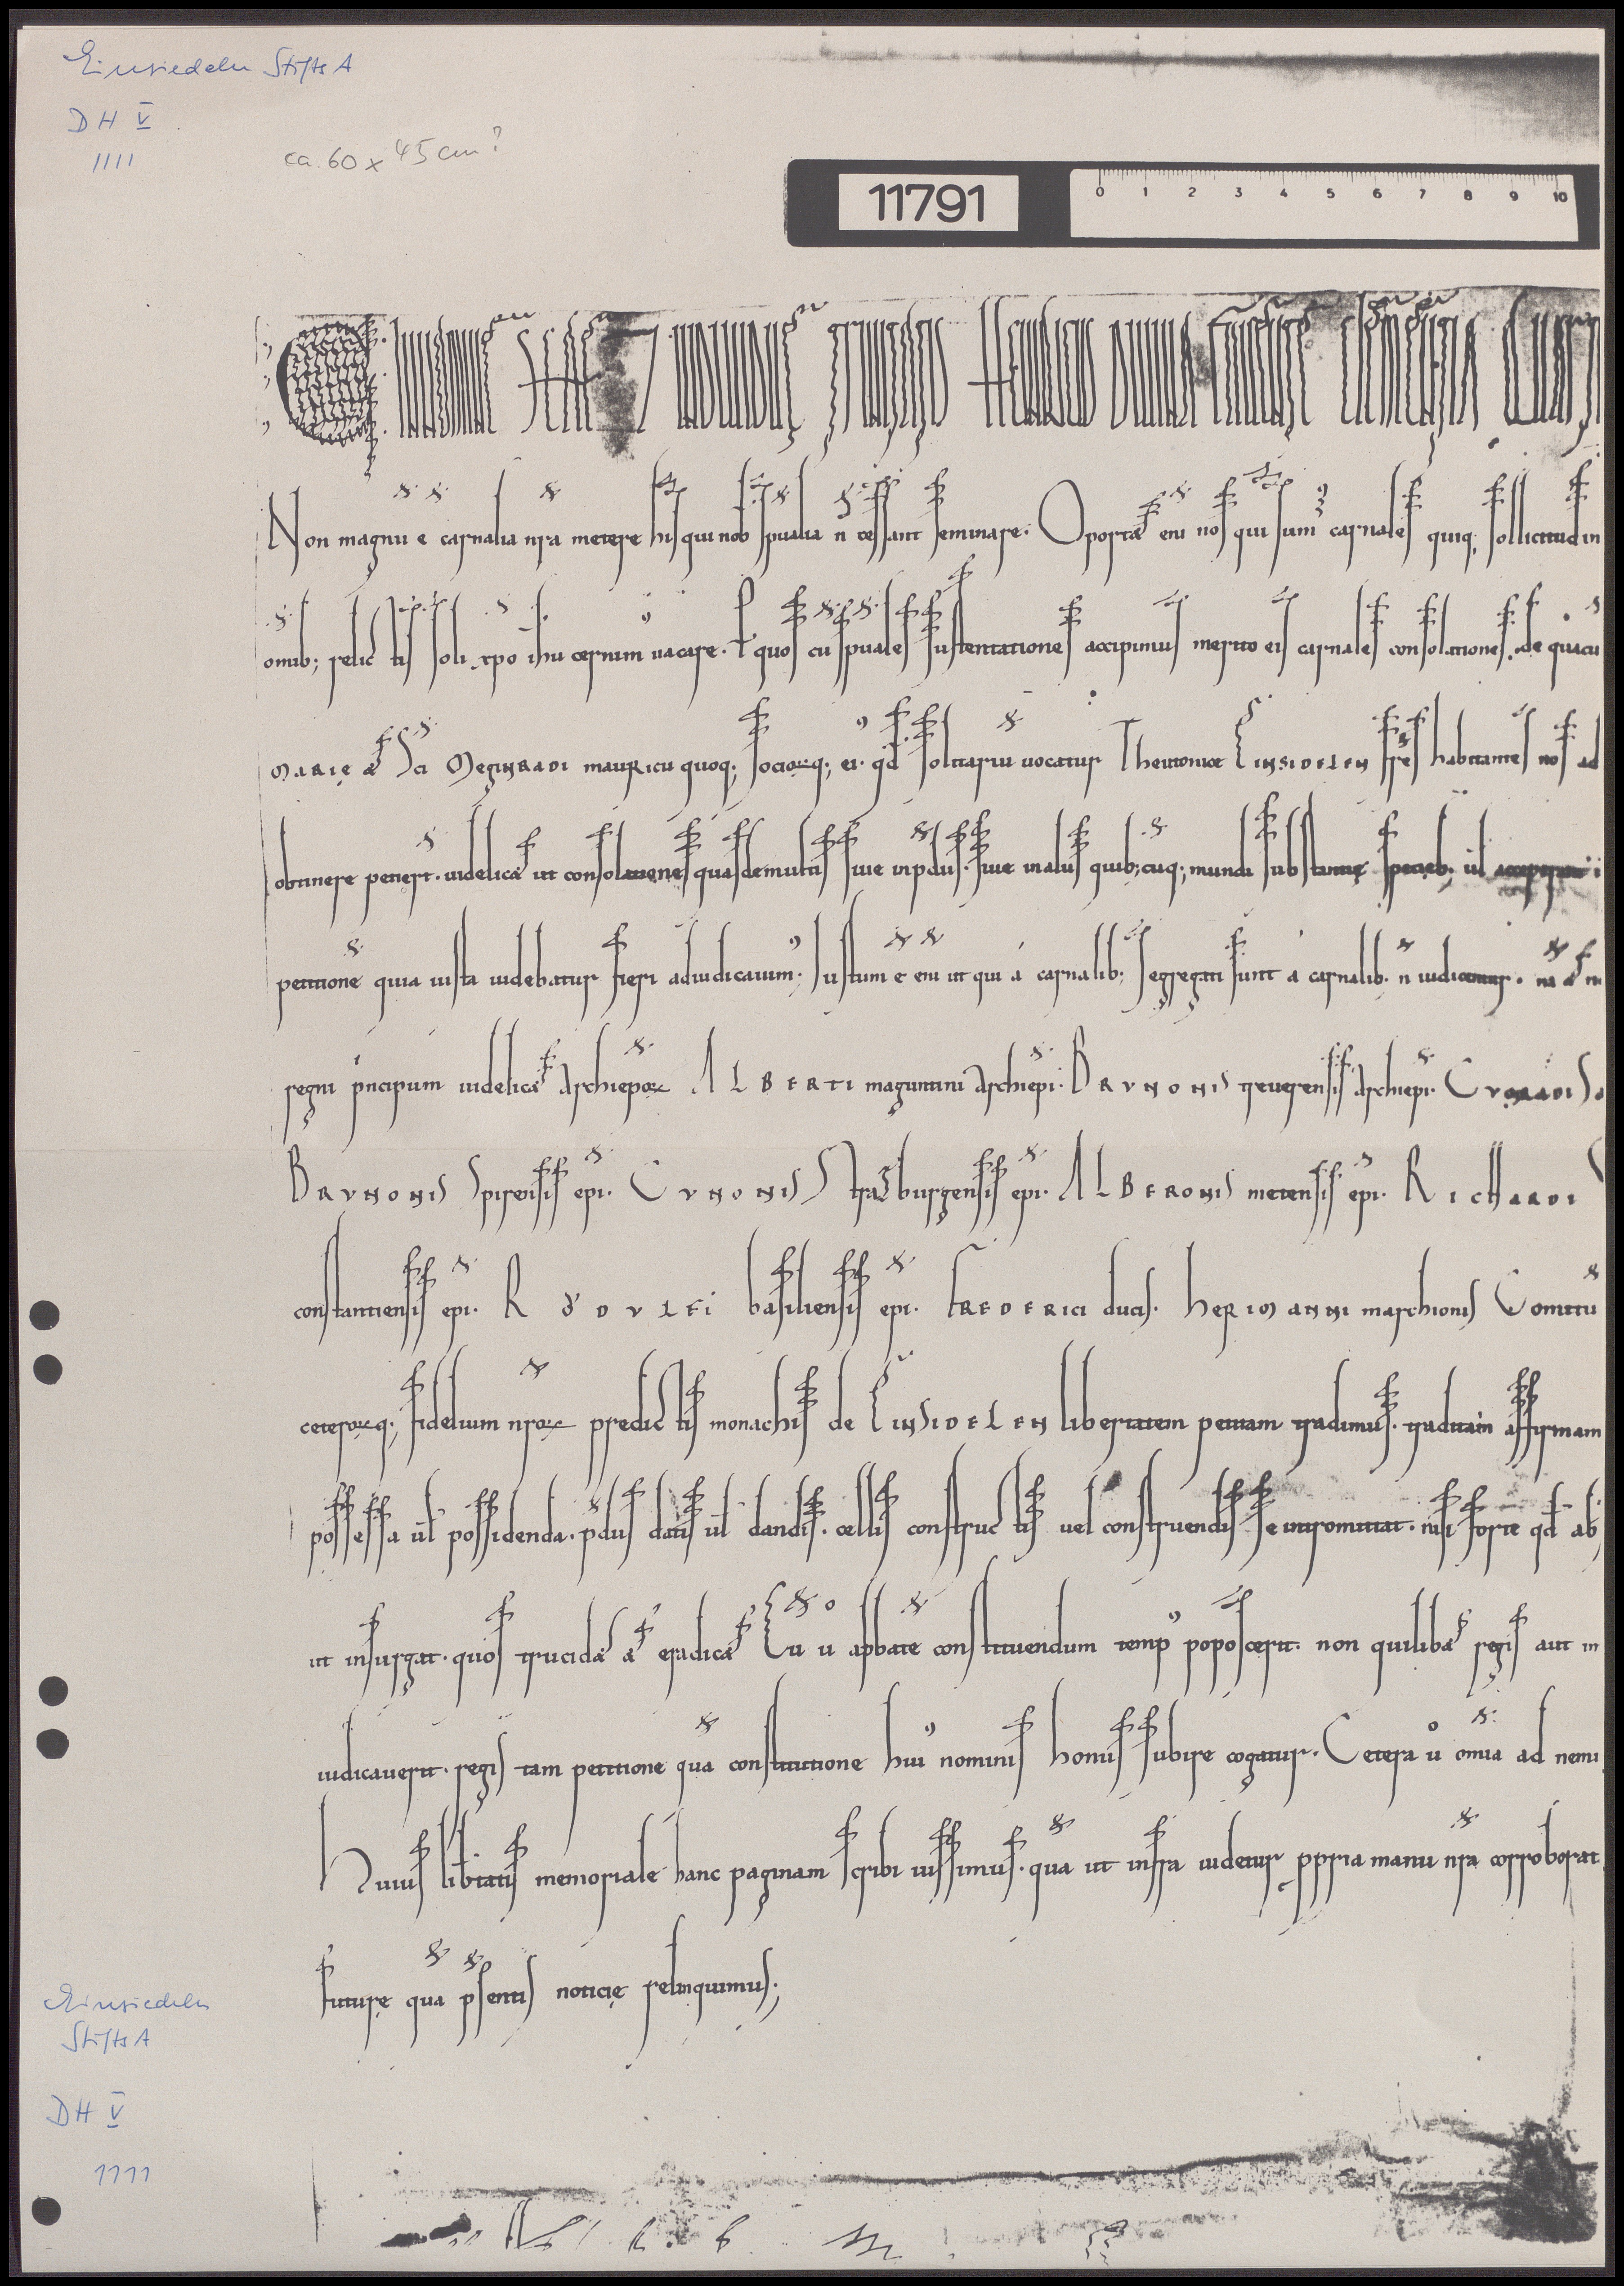 Einsiedeln StiftsA
DH V
1111
ca. 60 x 45 cm?
11791
0 1 2 3 4 5 6 7 8 9 10
C In nomine sancte & individue trinitatis Heinricus divina favente clementia
Non magnu e carnalia nra metere his qui nob spualia n cessant seminare. Oportet eni nos qui sum carnales quiq; sollicitud in
omib; relic tis soli xpo ihu cernim vacare. l quos cu spuales sustentationes accipimus merito eis carnales consolationes de quacu
Marię et Sci Meginradi mauricii quoq; socioꝝq; ei qd solitariu vocatur Theutonice Einsidelen frēs habitantes nos ad
obtinere petiert. videlicet ut consolatiene quasdemultis sive inpdiis. sive in aliis quib;cuq; mundi substantię specieb; ul acceperant
petitione quia iusta videbatur fieri adiudicavim; Iustum e eni ut qui a carnalib; segregati sunt a carnalib. n iudicentur. na et
regni pncipum videlicet Archiepoꝝ Alberti maguntini Archiepi. Brunonis treverensis Archiepi. Cunradi
Brunonis Spirensis epi. Cunonis Strasburgensis epi. Alberonis metensis epi. Richardi
constantiensis epi. Rodulfi basiliensis epi. Frederici ducis. herimanni marchionis Comitu
ceteroꝝq; fidelium nroꝝ predic tis monachis de Einsidelen libertatem petitam tradimus. traditam affirmam
possessa ul possidenda. pdiis datis ul dandis. cellis construc tis vel construendis se intromittat. nisi forte qd ab
ut insurgat. quos trucidet et eradicet Cu u abbate constituendum temp poposcerit. non quilibet regis aut in
iudicaverit. regis tam petitione qua constitutione hui nominis homis subire cogatur. Cetera u omia ad nemi
Huius libtatis memoriale hanc paginam scribi iussimus. qua ut infra videtur ppria manu nra corroborat
future qua psentis noticię relinquimus;
Einsiedeln
StiftsA
DH V
1111